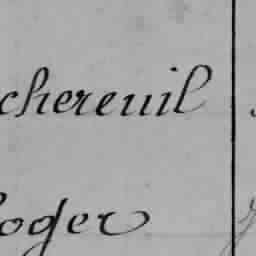 chereuil
oger